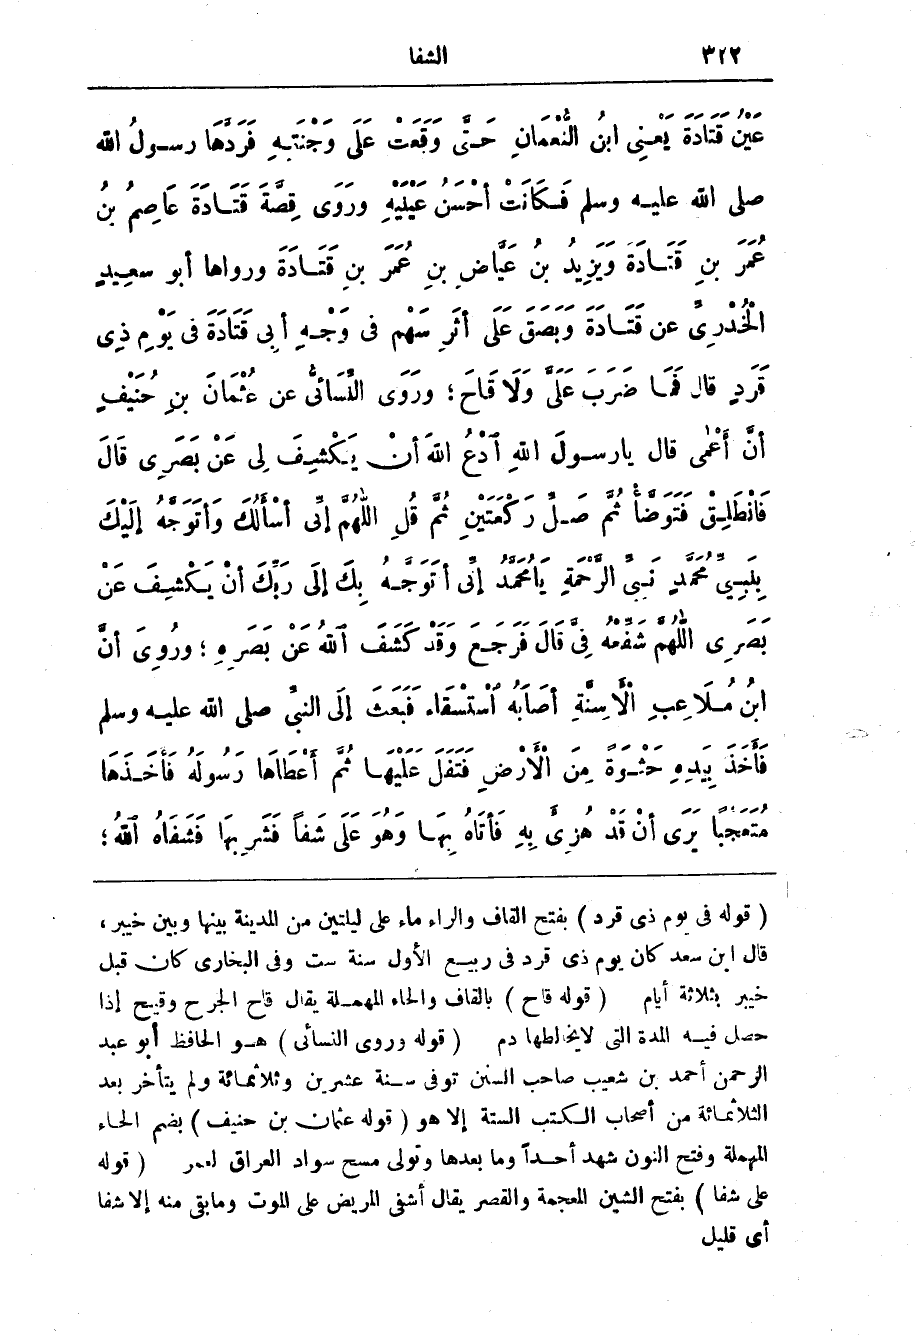 ٣٢٢ الشفا
عَيْنُ قَتَادَةَ يَعْنِى ابنُ النُّعْمَانِ حَتَّى وَقَعَتْ عَلَى وَجْنَتِهِ فَرَدَّهَا رسولُ الله
صلى الله عليه وسلم فَكَانَتْ أحْسَنُ عَيْنَيْهِ ورَوَى قِصَّةَ قَتَادَةَ عَاصِمُ بنُ
عُمَرَ بنِ قَتَادَةَ وَيَزِيدُ بنُ عَيَّاضِ بنِ عُمَرَ بنِ قَتَادَةَ ورواها أبو سعِيدٍ
الْخُدْرِىُّ عن قَتَادَةَ وَبَصَقَ عَلَى أثَرِ سَهْمٍ فى وَجْهِ أبى قَتَادَةَ فى يَوْمِ ذِى
قَرَدٍ قال فَمَا ضَرَبَ عَلَىَّ وَلَا قَاحَ؛ ورَوَى النَّسَائىُّ عن عُثْمَانَ بنِ حُنَيْفٍ
أنَّ أَعْمٰى قال يارسولَ اللهِ ادْعُ اللهَ أنْ يَكْشِفَ لِى عَنْ بَصَرِى قَالَ
فَانْطَلِقْ فَتَوَضَّأْ ثُمَّ صَلِّ رَكْعَتَيْنِ ثُمَّ قُلِ اللّٰهُمَّ إنِّى أسْأَلُكَ وَأتَوَجَّهُ إلَيْكَ
بِنَبِيِّ مُحَمَّدٍ نَبِىِّ الرَّحْمَةِ يَامُحَمَّدُ إنِّى أتَوَجَّهُ بِكَ إلَى رَبِّكَ أنْ يَكْشِفَ عَنْ
بَصَرِى اللّٰهُمَّ شَفِّعْهُ فِىَّ قَالَ فَرَجَعَ وَقَدْ كَشَفَ اللهُ عَنْ بَصَرِهِ؛ ورُوِىَ أنَّ
ابنُ مُلَاعِبِ الْأَسِنَّةِ أصَابَهُ اسْتِسْقَاء فَبَعَثَ إلَى النبىِّ صلى الله عليه وسلم
فَأَخَذَ بِيَدِهِ حَثْوَةً مِنَ الْأَرْضِ فَتَفَلَ عَلَيْهَا ثُمَّ أَعْطَاهَا رَسُولَهُ فَأخَذَهَا
مُتَعَجِّبًا يَرَى أنْ قَدْ هُزِىَّ بِهِ فَأتَاهُ بِهَا وَهُوَ عَلَى شَفاً فَشَرِبَهَا فَشَفَاهُ اللهُ؛
( قوله فى يوم ذى قرد ) بفتح القاف والراء ماء على ليلتين من المدينة بينها وبين خيبر،
قال ابن سعد كان يوم ذى قرد فى ربيع الأول سنة ست وفى البخارى كان قبل
خيبر بثلاثة أيام ( قوله قاح ) بالقاف والحاء المهملة يقال قاح الجرح وقيح إذا
حصل فيه المدة التى لايخالطها دم ( قوله وروى النسائى ) هو الحافظ أبو عبد
الرحمن أحمد بن شعيب صاحب السنن توفى سنة عشرين وثلاثمائة ولم يتأخر بعد
الثلاثمائة من أصحاب الكتب الستة إلا هو ( قوله عثمان بن حنيف ) بضم الحاء
المهملة وفتح النون شهد أحداً وما بعدها وتولى مسح سواد العراق لعمر ( قوله
على شفا ) بفتح الشين المعجمة والقصر يقال أشفى المريض على الموت ومابقى منه إلا شفا
أى قليل